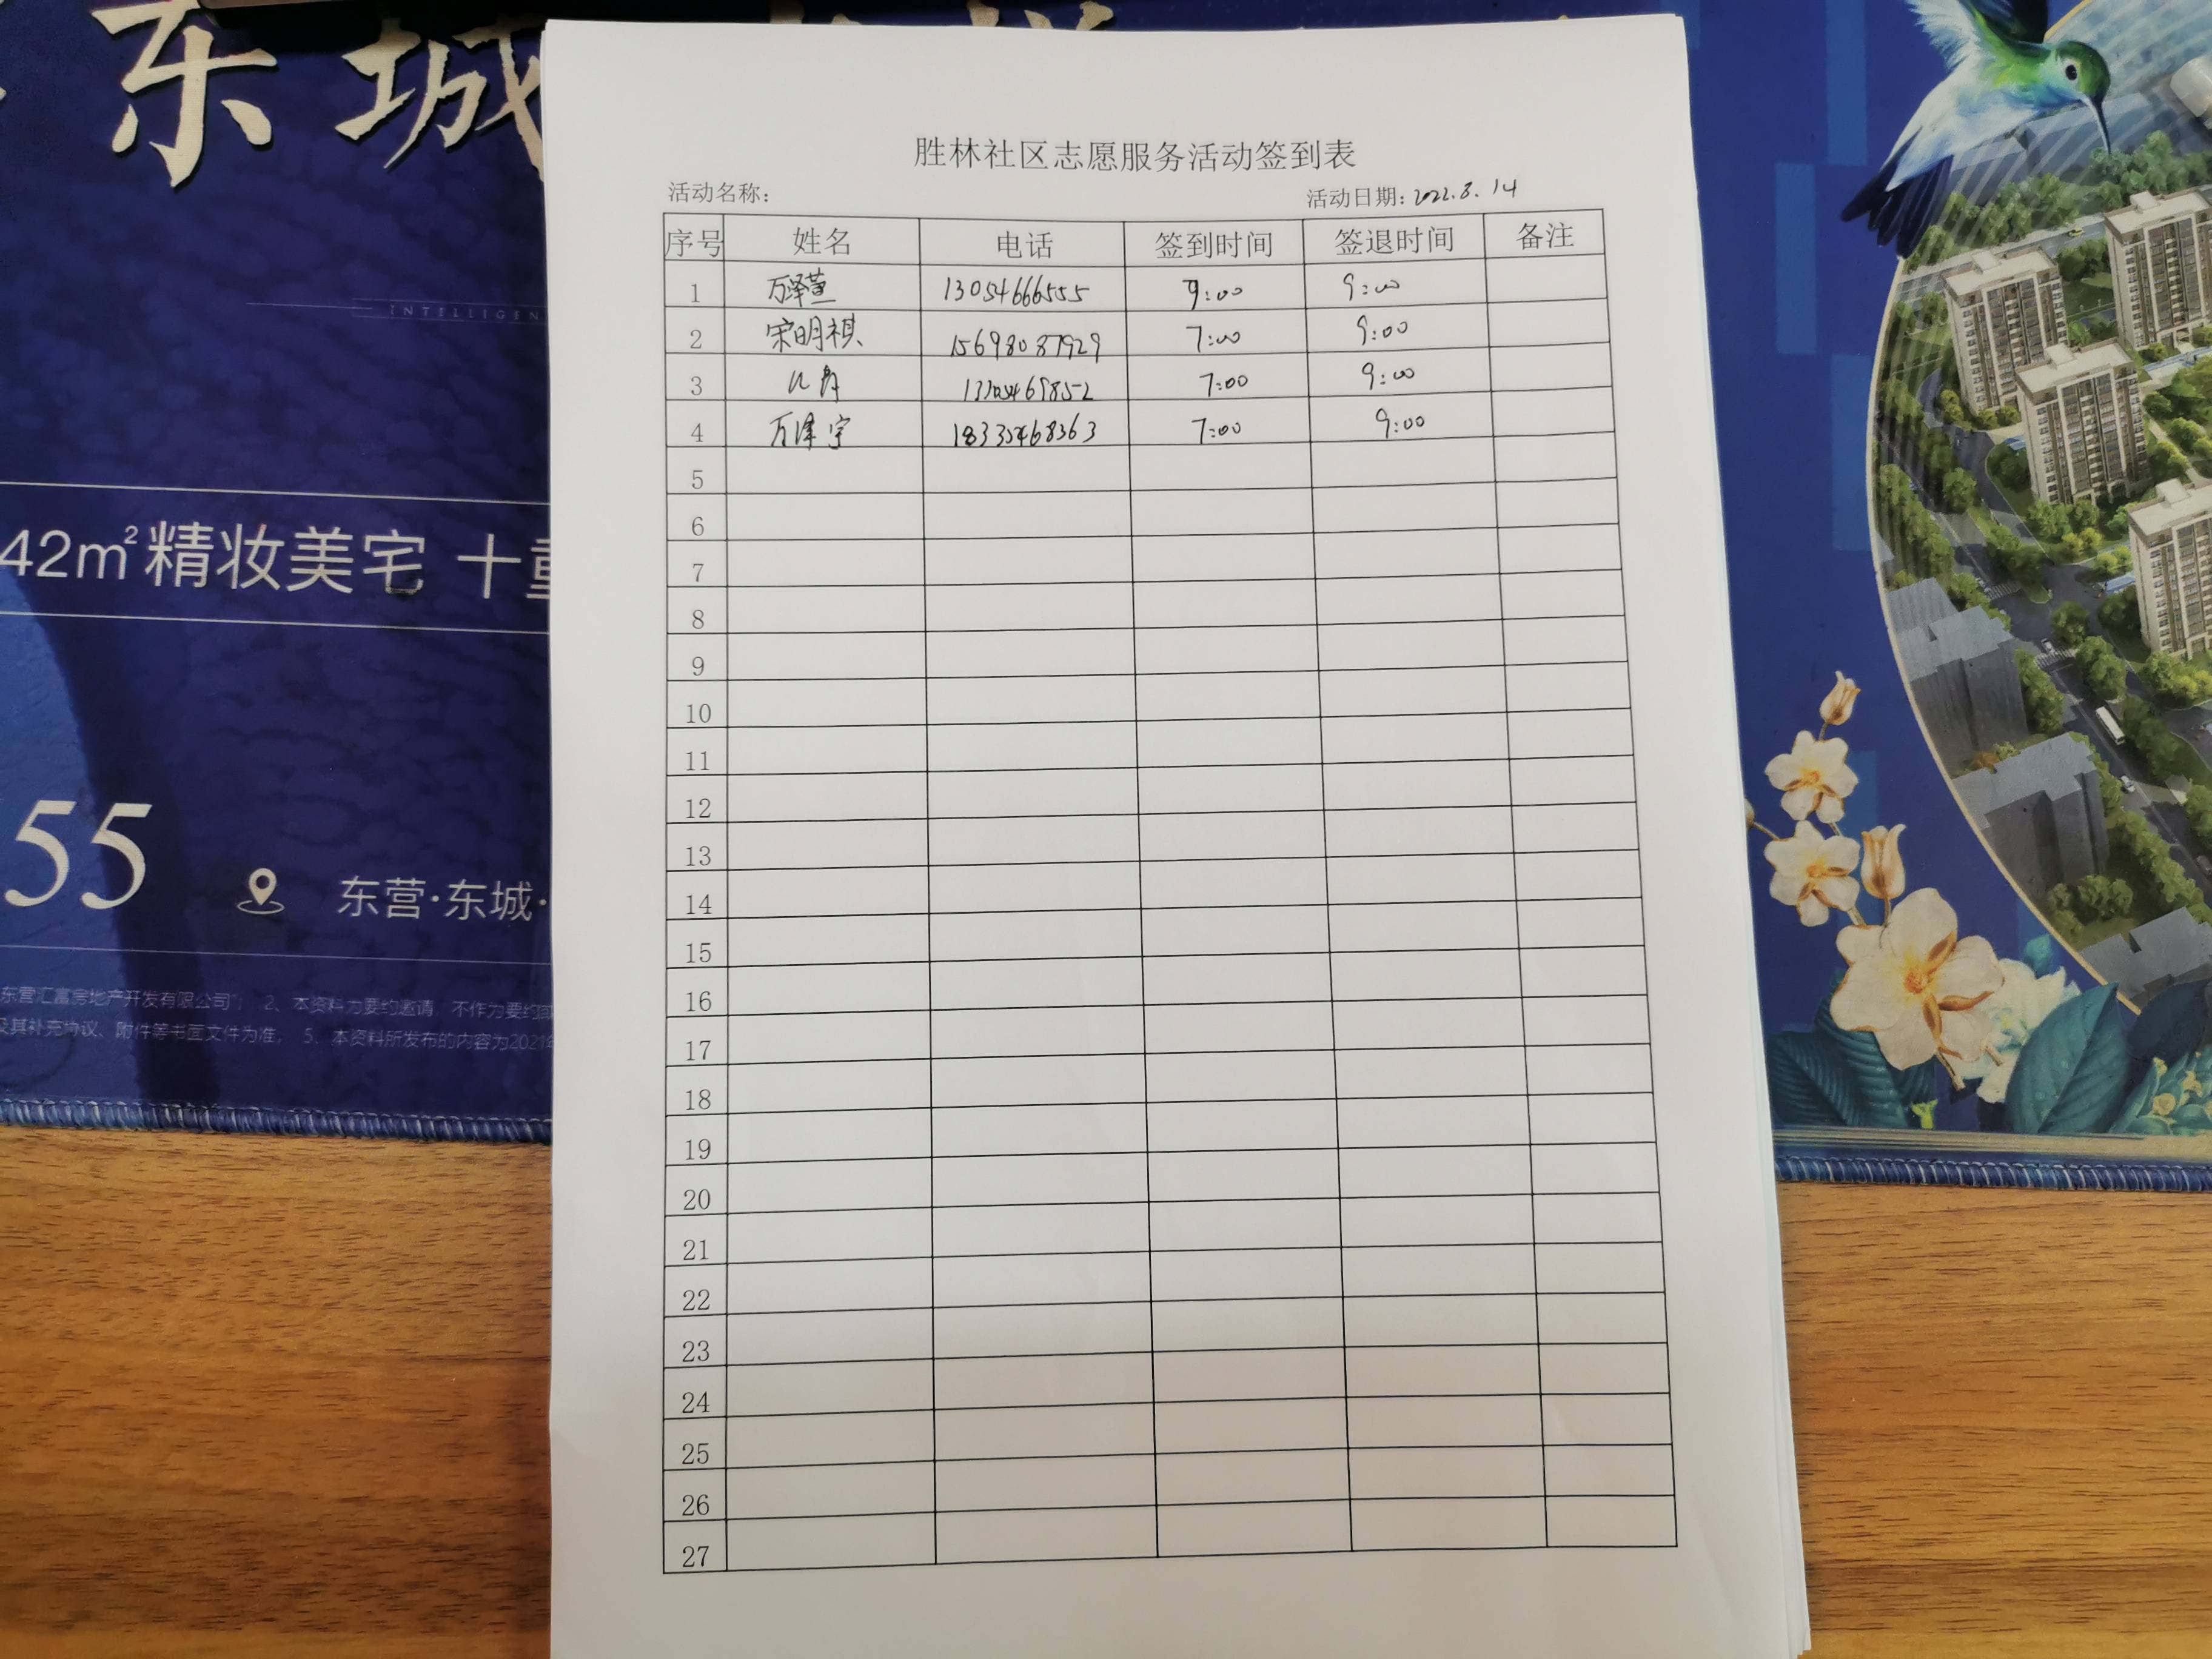 东城
INTELLIGEN
42m²精妆美宅 十
55
东营·东城·
东营汇富房地产开发有限公司"; 2、本资料为要约邀请,不作为要约
及其补充协议、附件等书面文件为准。 5、本资料所发布的内容为2021年
胜林社区志愿服务活动签到表
活动名称: 活动日期: 2022.8.14
序号 姓名 电话 签到时间 签退时间 备注
1 万泽萱 13054666555 9:00 9:00
2 宋明祺 15698087929 7:00 9:00
3 7:00 9:00
4 万泽宇 7:00 9:00
5
6
7
8
9
10
11
12
13
14
15
16
17
18
19
20
21
22
23
24
25
26
27